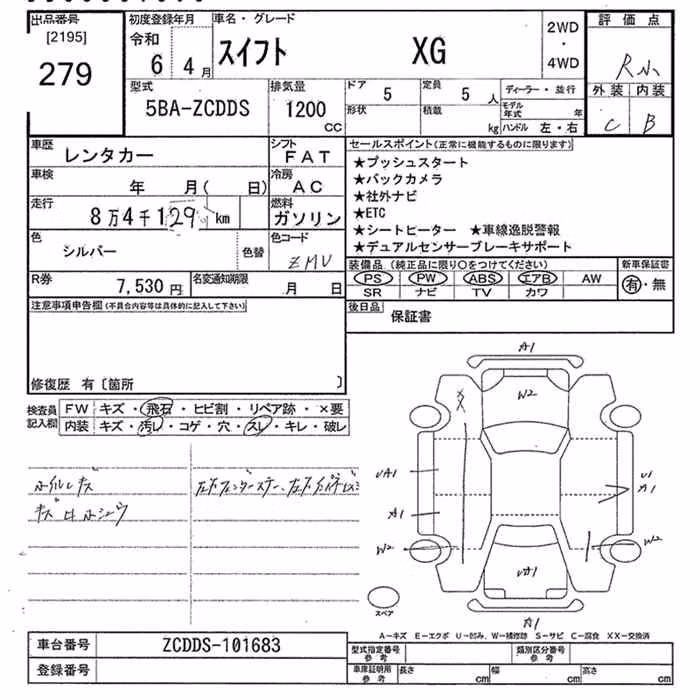 出品番号
[2195]
279
初度登録年月
令和
6 4月
車名・グレード
スイフト XG
2WD
・
4WD
評価点
R小
外装 内装
C B
型式
5BA-ZCDDS
排気量
1200
CC
ドア
5
定員
5 人
形状
積載
kg
ディーラー・並行
モデル年式 年
ハンドル 左・右
車歴
レンタカー
シフト
FAT
車検
年 月( 日)
冷房
AC
走行
8万4千129km
燃料
ガソリン
色
シルバー
色替
色コード
ZMU
R券
7,530円
名変通知期限
月 日
セールスポイント(正常に機能するものに限ります)
★プッシュスタート
★バックカメラ
★社外ナビ
★ETC
★シートヒーター ★車線逸脱警報
★デュアルセンサーブレーキサポート
装備品(純正品に限り○をつけてください)
PS PW ABS エアB AW
SR ナビ TV カワ
新車保証書
有・無
後日品
保証書
注意事項申告欄(不具合内容等は具体的に記入して下さい)
修復歴 有〔箇所 〕
検査員
記入欄
FW キズ・飛石・ヒビ割・リペア跡・×要
内装 キズ・汚レ・コゲ・穴・スレ・キレ・破レ
ホイルキズ
キズ ロ ホシュウ
A1
W2
XX
UA1
A1
W2
U1
A1
W2
UA1
A1
スペア
A-キズ E-エクボ U-凹み、W-補修跡 S-サビ C-腐食 XX-交換済
車台番号
ZCDDS-101683
登録番号
型式指定番号
参考
類別区分番号
参考
車庫証明用
参考
長さ cm
幅 cm
高さ cm